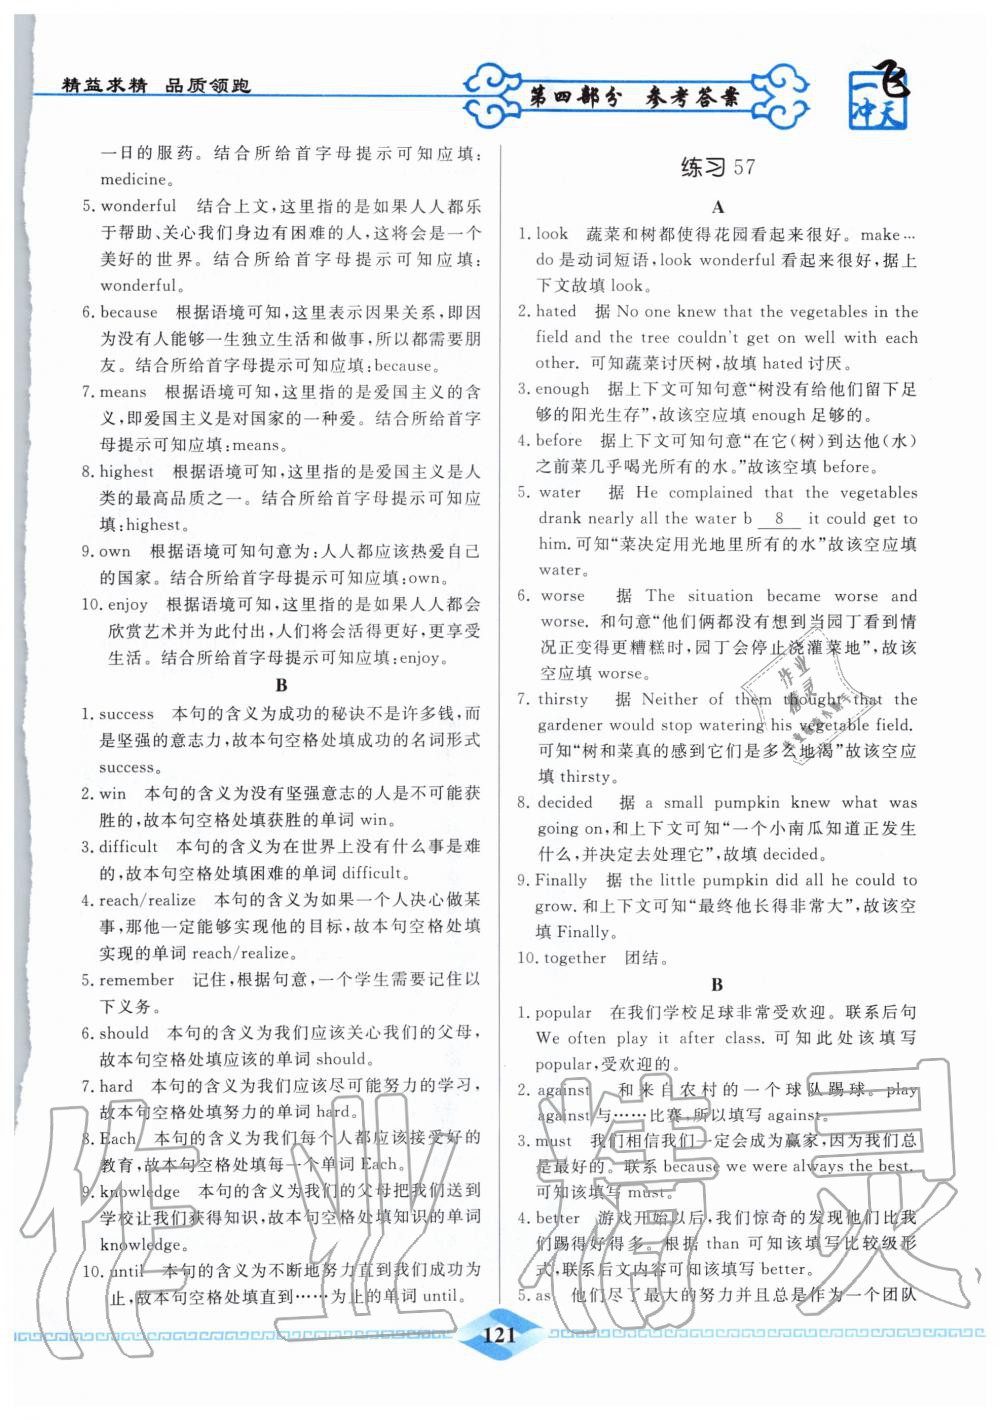 精益求精 品质领跑
第四部分 参考答案
一飞冲天
一日的服药。结合所给首字母提示可知应填:
medicine。
5. wonderful 结合上文,这里指的是如果人人都乐
于帮助、关心我们身边有困难的人,这将会是一个
美好的世界。结合所给首字母提示可知应填:
wonderful。
6. because 根据语境可知,这里表示因果关系,即因
为没有人能够一生独立生活和做事,所以都需要朋
友。结合所给首字母提示可知应填:because。
7. means 根据语境可知,这里指的是爱国主义的含
义,即爱国主义是对国家的一种爱。结合所给首字
母提示可知应填:means。
8. highest 根据语境可知,这里指的是爱国主义是人
类的最高品质之一。结合所给首字母提示可知应
填:highest。
9. own 根据语境可知句意为:人人都应该热爱自己
的国家。结合所给首字母提示可知应填:own。
10. enjoy 根据语境可知,这里指的是如果人人都会
欣赏艺术并为此付出,人们将会活得更好,更享受
生活。结合所给首字母提示可知应填:enjoy。
B
1. success 本句的含义为成功的秘诀不是许多钱,而
是坚强的意志力,故本句空格处填成功的名词形式
success。
2. win 本句的含义为没有坚强意志的人是不可能获
胜的,故本句空格处填获胜的单词 win。
3. difficult 本句的含义为在世界上没有什么事是难
的,故本句空格处填困难的单词 difficult。
4. reach/realize 本句的含义为如果一个人决心做某
事,那他一定能够实现他的目标,故本句空格处填
实现的单词 reach/realize。
5. remember 记住,根据句意,一个学生需要记住以
下义务。
6. should 本句的含义为我们应该关心我们的父母,
故本句空格处填应该的单词 should。
7. hard 本句的含义为我们应该尽可能努力的学习,
故本句空格处填努力的单词 hard。
8. Each 本句的含义为我们每个人都应该接受好的
教育,故本句空格处填每一个单词 Each。
9. knowledge 本句的含义为我们的父母把我们送到
学校让我们获得知识,故本句空格处填知识的单词
knowledge。
10. until 本句的含义为不断地努力直到我们成功为
止,故本句空格处填直到……为止的单词 until。
练习 57
A
1. look 蔬菜和树都使得花园看起来很好。make…
do 是动词短语,look wonderful 看起来很好,据上
下文故填 look。
2. hated 据 No one knew that the vegetables in the
field and the tree couldn't get on well with each
other. 可知蔬菜讨厌树,故填 hated 讨厌。
3. enough 据上下文可知句意“树没有给他们留下足
够的阳光生存”,故该空应填 enough 足够的。
4. before 据上下文可知句意“在它(树)到达他(水)
之前菜几乎喝光所有的水。”故该空填 before.
5. water 据 He complained that the vegetables
drank nearly all the water b 8 it could get to
him. 可知“菜决定用光地里所有的水”故该空应填
water。
6. worse 据 The situation became worse and
worse. 和句意“他们俩都没有想到当园丁看到情
况正变得更糟糕时,园丁会停止浇灌菜地”,故该
空应填 worse。
7. thirsty 据 Neither of them thought that the
gardener would stop watering his vegetable field.
可知“树和菜真的感到它们是多么地渴”故该空应
填 thirsty。
8. decided 据 a small pumpkin knew what was
going on,和上下文可知“一个小南瓜知道正发生
什么,并决定去处理它”,故填 decided。
9. Finally 据 the little pumpkin did all he could to
grow. 和上下文可知“最终他长得非常大”,故该空
填 Finally。
10. together 团结。
B
1. popular 在我们学校足球非常受欢迎。联系后句
We often play it after class. 可知此处该填写
popular,受欢迎的。
2. against 和来自农村的一个球队踢球。play
against 与……比赛,所以填写 against。
3. must 我们相信我们一定会成为赢家,因为我们总
是最好的。联系 because we were always the best.
可知该填写 must。
4. better 游戏开始以后,我们惊奇的发现他们比我
们踢得好得多。根据 than 可知该填写比较级形
式,联系后文内容可知该填写 better。
5. as 他们尽了最大的努力并且总是作为一个团队
作业精灵
作业精灵
121